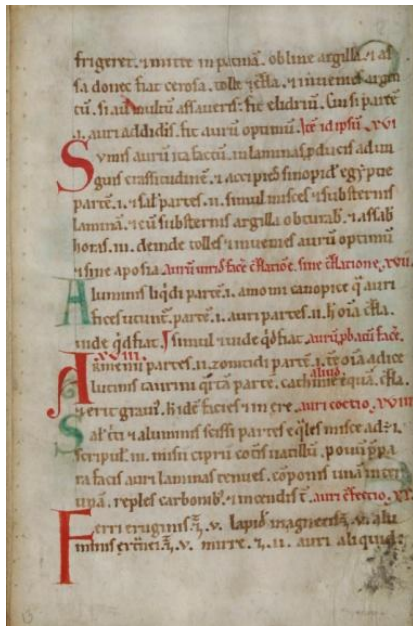 frigeret. ⁊ mitte in patinā. obline argilla. ⁊ as
sa donec fiat cerosa. tolle ⁊ ɔfla. ⁊ invenies argen
tū. si aū multū assaveris. fit elidriū. Cui si partē
.i. auri addidis. fit aurū optimū. Itē id ipsū. xvi
Sumis aurū ita factū. in laminas pducis ad un
guis crassitudinē. ⁊ accipies sinopidę egyptię
partē .i. ⁊ sal partes .ii. simul misces ⁊ substernis
laminā. ⁊ cū substernis argilla obturab. ⁊ assab
horas .iii. deinde tolles ⁊ invenies aurū optimū
⁊ sine aposia. aurū viridę facē ɔflatiōe. sine ɔflatione. xvii
Aluminis liqdi partē .i. amomi canopice q auri
fices utunt. partē .i. auri partes .ii. h oīa ɔfla.
vide qd fiat simul ⁊ vide qd fiat. aurū pbatū facē.
xviii.
partes .ii. partē .i. ⁊ oīa adice
aliud.
taurini qrta partē. cathmię equa. ɔfla.
⁊ erit graū. h idē facies ⁊ in ere. auri coctio. xviiii
Sal ⁊ aluminis scissi partes eqles misce ad .i.
scripul. in misii ciprii . pɔni ppa
ra facis auri laminas tenues. cōponis unā inter
unā. reples carbonib. ⁊ incendis . auri ɔfectio. xx
Ferri eruginis .v. lapid magnetis .v. alu
minis .v. mirrę .ii. auri aliquid.